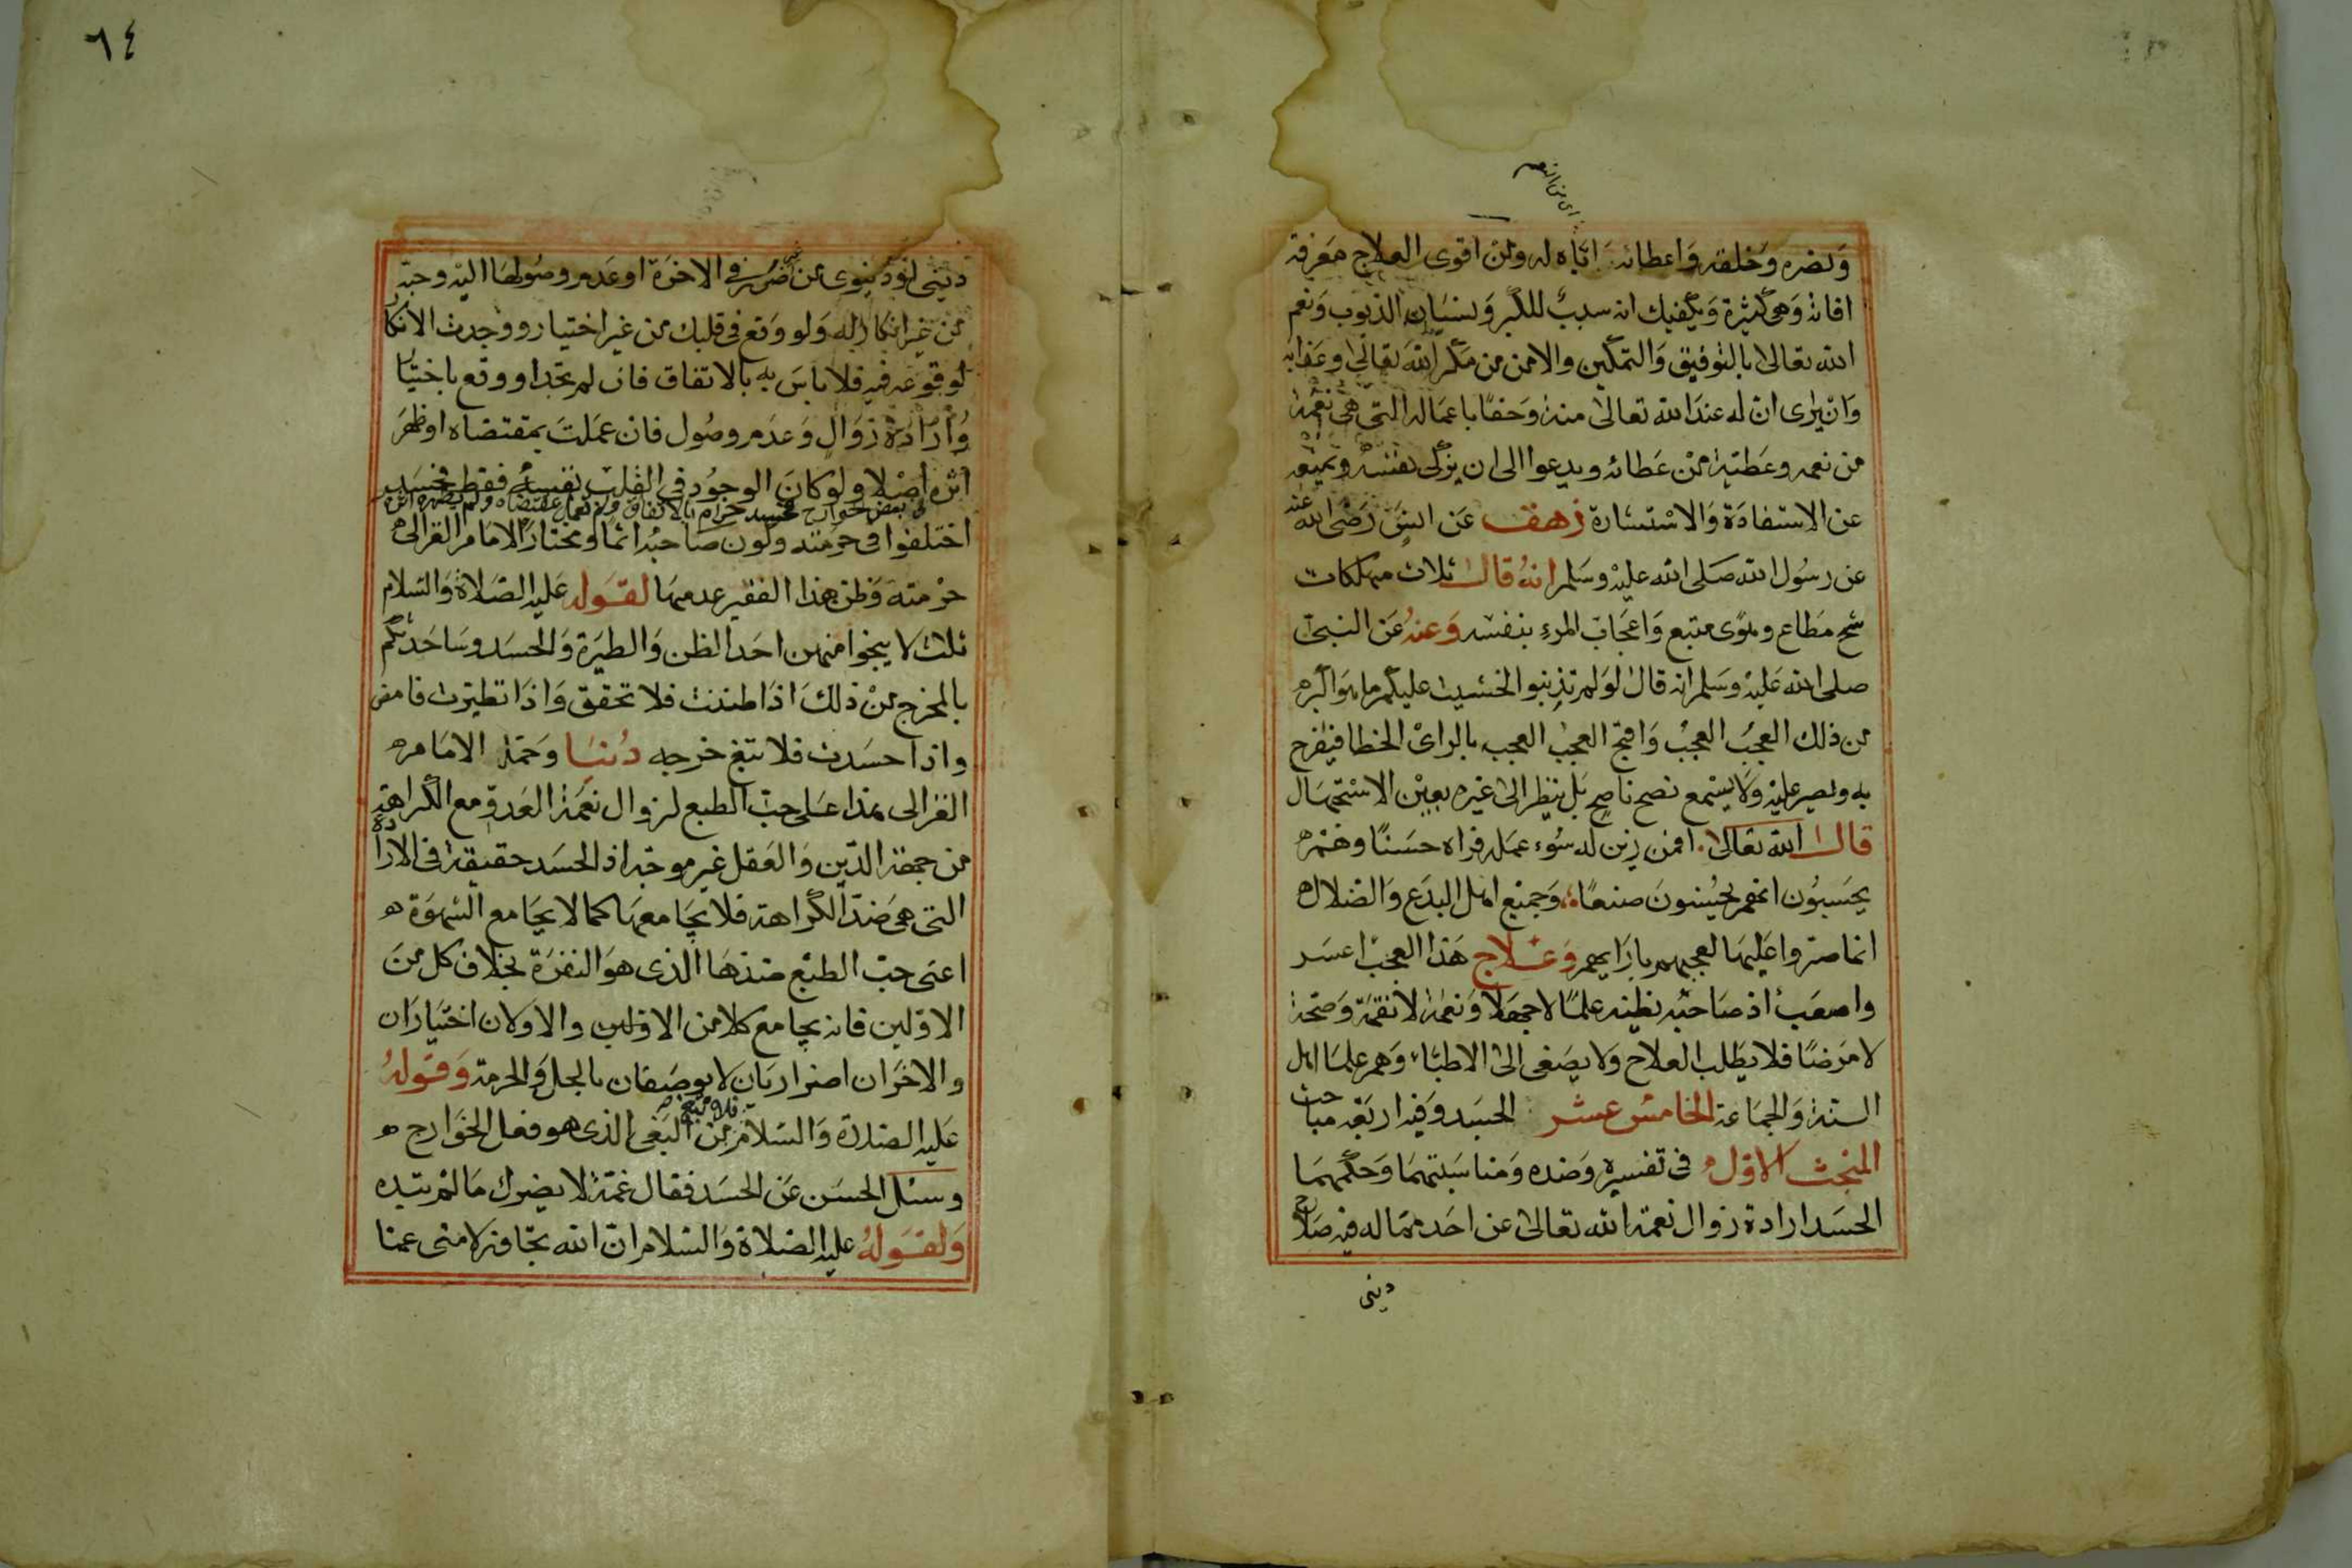 اى من انعم
ونصره وخلقه واعطائه اياه له ومن اقوى العلاج معرفة
افاته وهى كثيرة ويكفيك انه سبب للكبر ونسيان الذنوب ونعم
الله تعالى بالتوفيق والتمكين والامن من مكر الله تعالى وعذابه
وان يرى ان له عند الله تعالى منة وحقا باعماله التى هى نعمة
من نعمه وعطية من عطائه ويدعوا الى ان يزكى نفسه ويمنعه
عن الاستفادة والاستشارة زهق عن انس رضى الله عنه
عن رسول الله صلى الله عليه وسلم انه قال ثلاث مهلكات
شح مطاع وهوى متبع واعجاب المرء بنفسه وعنه عن النبى
صلى الله عليه وسلم انه قال لو لم تذنبوا لخشيت عليكم ما هو اكبر
من ذلك العجب العجب واقبح العجب العجب بالراى الخطا فيفرح
به ويصر عليه ولا يستمع نصح ناصح بل ينظر الى غيره بعين الاستجهال
قال الله تعالى افمن زين له سوء عمله فراه حسنا وهم
يحسبون انهم يحسنون صنعا وجميع اهل البدع والضلال
انما صروا عليها لعجبهم بارايهم وعلاج هذا العجب اعسر
واصعب اذ صاحبه يظنه علما لا جهلا ونعمة لا نقمة وصحة
لا مرضا فلا يطلب العلاج ولا يصغى الى الاطباء وهم علما اهل
السنة والجماعة الخامس عشر الحسد وفيه اربعة مباحث
المبحث الاول فى تفسيره وضده ومناسبتهما وحكمهما
الحسد ارادة زوال نعمة الله تعالى عن احد مما له فيه صلاح
دينى
٦٤
دينى او دنيوى من غير ضرر فى الاخرة او عدم وصولها اليه وحبه
من غير انكار له ولو وقع فى قلبك من غير اختيار ووجدت الانكار
لوقوعه فيه فلا باس به بالاتفاق فان لم تجد او وقع باختيار
وارادة زوال وعدم وصول فان عملت بمقتضاه او ظهر
اثره فى بعض الجوارح فحسد حرام بالاتفاق ولم تعمل بمقتضاه ولم يظهر اثره
اصلا ولو كان الوجود فى القلب نفسه فقط فحسد
اختلفوا فى حرمته وكون صاحبه اثما ومختار الامام الغزالى
حرمته وظن هذا الفقير عدمها لقوله عليه الصلاة والسلام
ثلث لا ينجوا منهن احد الظن والطيرة والحسد وساحدثكم
بالمخرج من ذلك اذا ظننت فلا تحقق واذا تطيرت فامض
واذا حسدت فلا تبغ خرجه دنيا وحمة الامام
الغزالى هذا على حب الطبع لزوال نعمة العدو مع الكراهة
من جهة الدين والعقل غير موجه اذ الحسد حقيقة فى الارادة
التى هى ضد الكراهة فلا يجامعها كما لا يجامع الشهوة
اعنى حب الطبع ضدها الذى هو النفرة بخلاف كل من
الاولين فانه يجامع كلا من الاولين والاولان اختياران
والاخران اضراريان لا يوصفان بالحل والحرمة وقوله
عليه الصلاة والسلام فلا تبغ من البغى الذى هو فعل الجوارح
وسئل الحسن عن الحسد فقال غمة لا يضرك ما لم تبده
ولقوله عليه الصلاة والسلام ان الله تجاوز لامتى عما